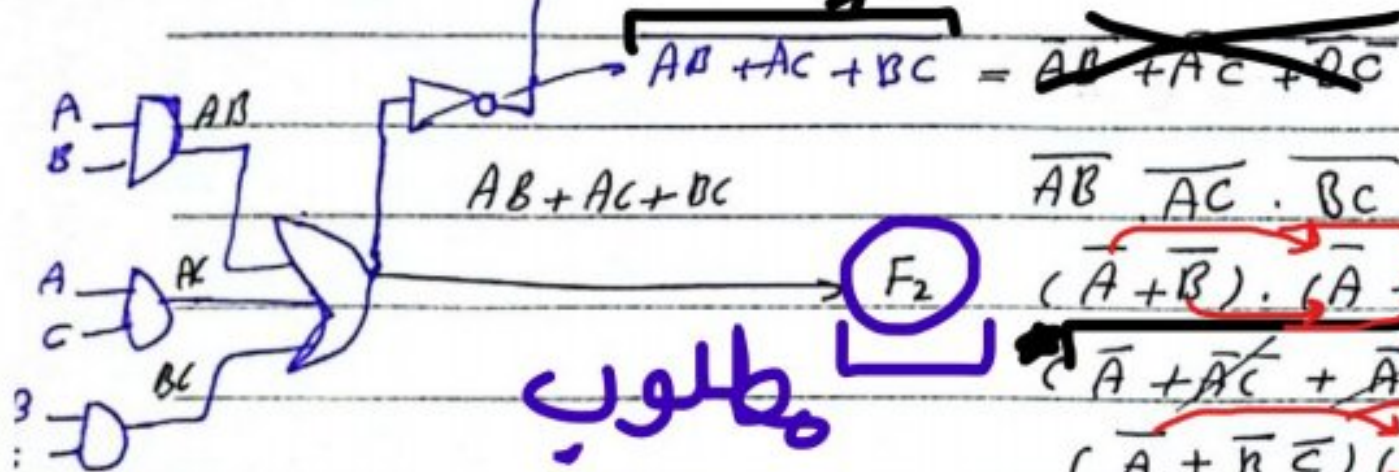 AB + AC + BC = A̅B̅ + A̅C̅ + B̅C̅
A AB
B
AB + AC + BC
A̅B̅ . A̅C̅ . B̅C̅
A AC
C
F₂
(A̅ + B̅) . (A̅
BC
مطلوب
(A̅ + A̅C̅ + A̅
(A̅ + B̅ C̅) (